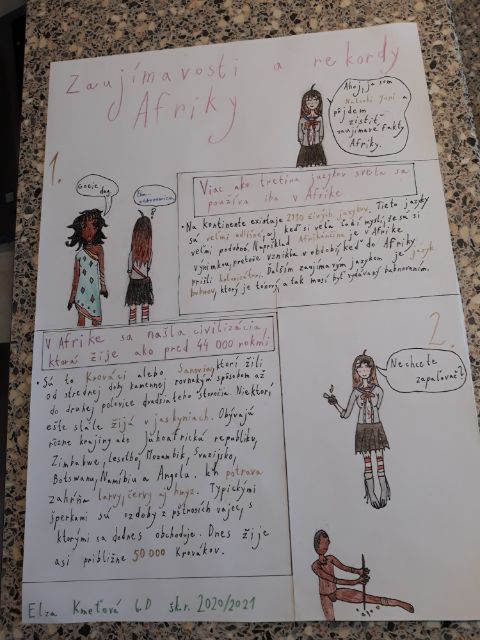 Zaujímavosti a rekordy
Afriky
Ahoj, ja som
Natsuki Yuri a
pôjdem
zistiť
zaujímavé fakty
Afriky.
1.
Goeie
dag.
Viac ako tretina jazykov sveta sa
používa iba v Afrike
• Na kontinente existuje 2110 živých jazykov. Tieto jazyky
sú veľmi odlišné, aj keď si veľa ľudí myslí, že sú si
veľmi podobné. Napríklad Afrikánčina je v Afrike
výnimkou, pretože vznikla v období, keď do Afriky
prišli kolonizátori. Ďalším zaujímavým jazykom je jazyk
bubnov, ktorý je tónový a tak musí byť vydávaný bubnovaním.
V Afrike sa našla civilizácia,
ktorá žije ako pred 44 000 rokmi
• Sú to Krováci alebo Sanovia, ktorí žili
od strednej doby kamennej rovnakým spôsobom až
do druhej polovice dvadsiateho storočia. Niektorí
ešte stále žijú v jaskyniach. Obývajú
rôzne krajiny ako Juhoafrickú republiku,
Zimbabwe, Lesotho, Mozambik, Svazijsko,
Botswanu, Namíbiu a Angolu. Ich potrava
zahŕňa larvy, červy aj hmyz. Typickými
šperkami sú ozdoby z pštrosích vajec, s
ktorými sa dodnes obchoduje. Dnes žije
asi približne 50 000 Krovákov.
2.
Nechcete
zapaľovač?
Elza Kmeťová 6.D šk.r. 2020/2021